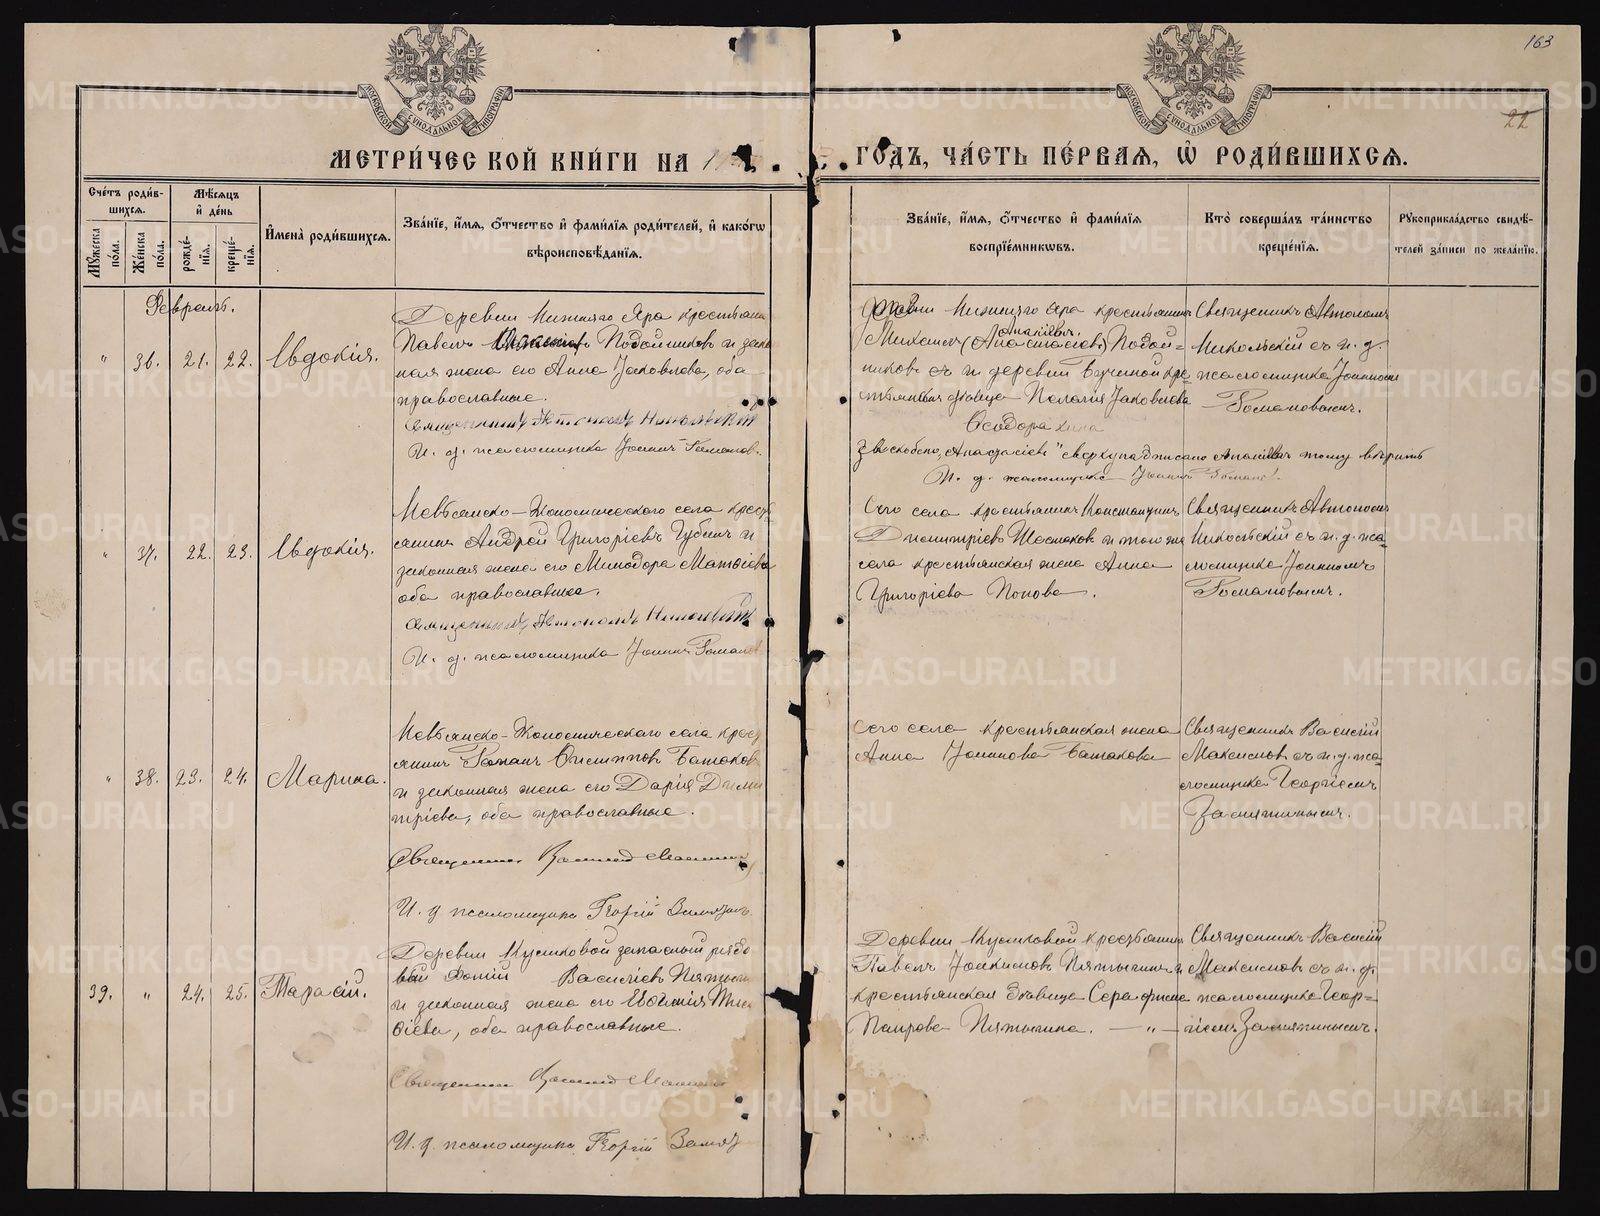 163
22
МОСКОВСКОЙ СѴНОДАЛЬНОЙ ТИПОГРАФІИ
МОСКОВСКОЙ СѴНОДАЛЬНОЙ ТИПОГРАФІИ
МЕТРИ́ЧЕСКОЙ КНИ́ГИ НА
ГО́ДЪ, ЧА́СТЬ ПЕ́РВАЯ, Ѡ РОДИ́ВШИХСЯ.
Сче́тъ роди́в-
шихся.
Мѣ́сяцъ
и́ де́нь
Мꙋ́жеска по́ла.
Же́нска по́ла.
рожде́-
нїя.
креще́-
нїя.
И҆мена̀ роди́вшихся.
Зва́нїе, и҆́мя, ѻ҆́тчество и҆ фами́лїя роди́телей, и҆ како́гѡ
вѣроисповѣ́данїя.
Зва́нїе, и҆́мя, ѻ҆́тчество и҆ фами́лїя
воспрїе́мникѡвъ.
Кто̀ соверша́лъ та́инство
креще́нїя.
Рꙋкоприкла́дство свидѣ́-
телей за́писи по жела́нїю.
Февраль.
" 36. 21. 22. Евдокія.
Деревни Нижняго Яра крестьянин
Павелъ Подойниковъ и закон
ная жена его Анна Іаковлева, оба
православные.
Священникъ Автономъ Никольскій
И. д. псаломщика Іоаннъ Романовъ.
Деревни Нижняго Яра крестьянинъ
Михаилъ (Анастасіевъ) Подой-
никовъ и деревни крe-
стьянская дѣвица Пелагія Іаковлева
Ѳеодора
И. д. псаломщика Іоаннъ Романовъ.
Священникъ Автономъ
Никольскій съ и. д.
псаломщика Іоанномъ
Романовымъ.
" 37. 22. 23. Евдокія.
Невьянско-Экономическаго села кресть
янинъ Андрей Григоріевъ Губинъ и
законная жена его Минодора Матѳіева
оба православные.
Священникъ Автономъ Никольскій
И. д. псаломщика Іоаннъ Романовъ
Сего села крестьянинъ Константинъ
Димитріевъ Шестаковъ и того же
села крестьянская жена Анна
Григоріева Попова.
Священникъ Автономъ
Никольскій съ и. д. пса-
ломщика Іоанномъ
Романовымъ.
" 38. 23. 24. Марина.
Невьянско-Экономическаго села крест
янинъ Романъ Филипповъ Батаков
и законная жена его Дарія Дими
тріева, оба православные.
Священникъ Василій Максимовъ
И. д. псаломщика Георгій
Сего села крестьянская жена
Анна Іоаннова Батакова
Священникъ Василій
Максимовъ съ и. д. пса-
ломщика Георгіемъ
Замятинымъ.
39. " 24. 25. Тарасій.
Деревни Кушковой запасный рядо
вой Василіевъ Пятыгин
и законная жена его Евѳимія
ѳіева, оба православные.
Священникъ Василій Максимовъ
И. д. псаломщика Георгій
Деревни Кушковой крестьянинъ
Павелъ Іоакимовъ Пятыгинъ и
крестьянская дѣвица Серафима
Петрова Пятыгина. — " —
Священникъ Василій
Максимовъ съ и. д.
псаломщика Геор-
гіемъ Замятинымъ.
METRIKI.GASO-URAL.RU